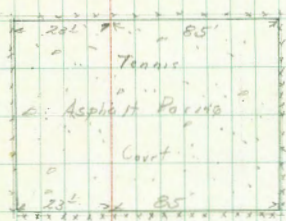 23' 85'
Tennis
Asphalt Paving
Court
23' 85